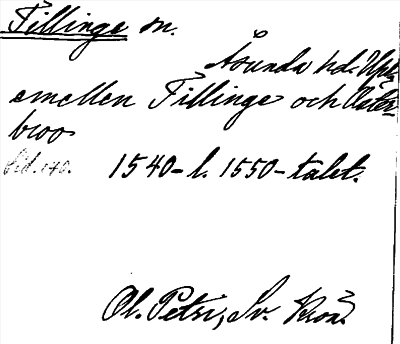 Tillinge sn.
Åsunda hd. Upl.
emellan Tillinge och Öster-
broo
Sid. 140.
1540-l. 1550-talet.
Ol. Petri, Sv. Krön.